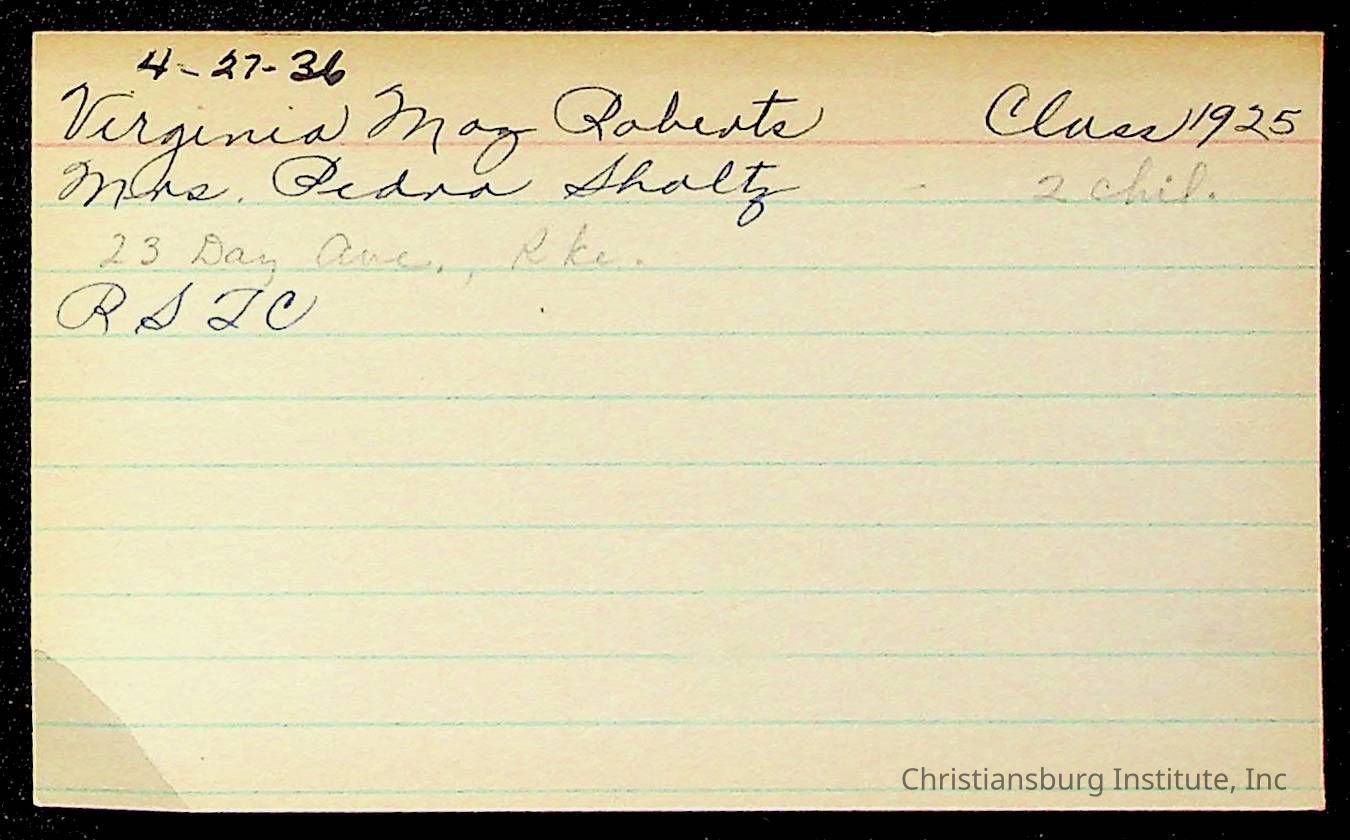 4-27-36
Virginia May Roberts Class 1925
Mrs. Pedro Sholtz 2 chil.
23 Day Ave., Rke.
R S T C
Christiansburg Institute, Inc